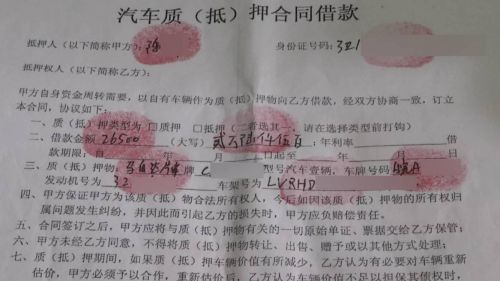 汽车质（抵）押合同借款
抵押人（以下简称甲方）： 身份证号码：321
抵押权人（以下简称乙方）：
甲方自身资金周转需要，以自有车辆作为质（抵）押物向乙方借款，经双方协商一致，订立
本合同，协议如下：
一、质（抵）押类型为□质押 □抵押（二者选其一，请在选择类型前打钩）
二、借款金额26500（大写）贰万陆仟伍佰；年利率 借
款期限：自 年 月 日起至 年 月
三、质（抵）押物： 牌 C 型号汽车壹辆，车牌号码 皖A
发动机号为 32 车架号为 LVRHD
四、甲方保证甲方为该质（抵）押物合法所有权人，今后如因该质（抵）押物的所有权归
属问题发生纠纷，并因此而引起乙方的损失时，甲方应负赔偿责任。
五、合同签订之后，甲方应将与质（抵）押物有关的一切原始单证、票据交给乙方保管；
六、甲方未经乙方同意，不得将质（抵）押物转让、出售、赠予或以其他方式处理；
七、质（抵）押期间，如果质（抵）押车辆价值有所减少，乙方认为有必要对车辆重新
估价，甲方必须予以合作，重新估价后，乙方认为车辆价值不足以担保其债权时，